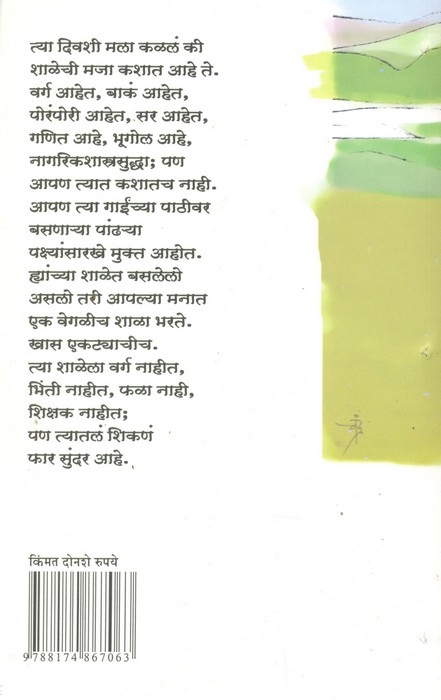 त्या दिवशी मला कळलं की
शाळेची मजा कशात आहे ते.
वर्ग आहेत, बाकं आहेत,
पोरंपोरी आहेत, सर आहेत,
गणित आहे, भूगोल आहे,
नागरिकशास्त्रसुद्धा; पण
आपण त्यात कशातच नाही.
आपण त्या गाईंच्या पाठीवर
बसणाऱ्या पांढऱ्या
पक्ष्यांसारखे मुक्त आहोत.
ह्यांच्या शाळेत बसलेली
असली तरी आपल्या मनात
एक वेगळीच शाळा भरते.
खास एकट्याचीच.
त्या शाळेला वर्ग नाहीत,
भिंती नाहीत, फळा नाही,
शिक्षक नाहीत;
पण त्यातलं शिकणं
फार सुंदर आहे.
किंमत दोनशे रुपये
9788174867063